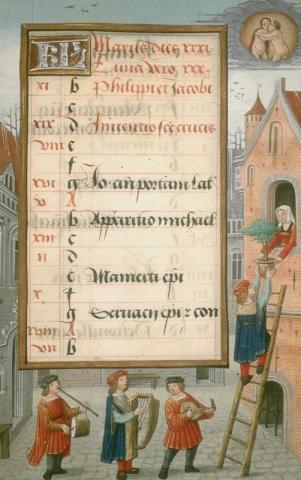 KL Maius dies xxxi
luna vero xxx.
xi b Philippi et Jacobi
c
xix d Inventio sce crucis
viii e
f
xvi g Jo. an portam lat
v A
b Apparitio michael
xiii c
ii d
e Mamerti epi
x f
g Servacii epi z con
xviii A
vii b